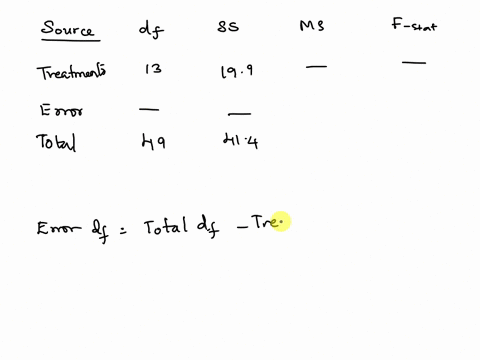 Source df SS MS F-stat
Treatments 13 19.9 — —
Error — —
Total 49 41.4
Error df = Total df - Tre